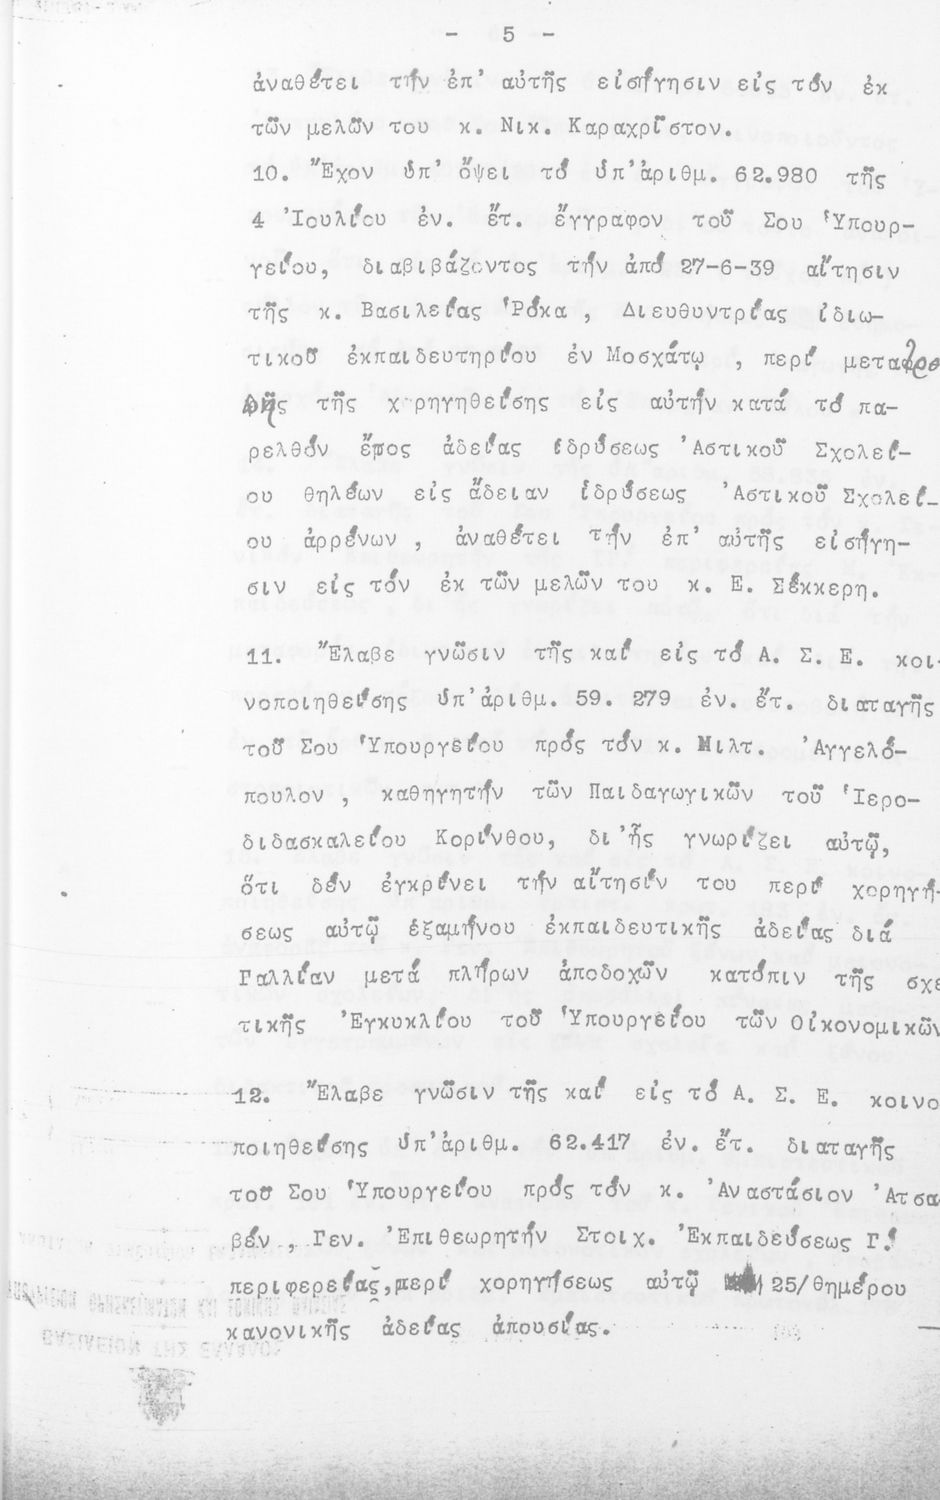 - 5 -
ἀναθέτει τήν ἐπ' αὐτῆς εἰσήγησιν εἰς τόν ἐκ
τῶν μελῶν του κ. Νικ. Καραχρῖστον.
10. Ἔχον ὑπ' ὄψει τό ὑπ' ἀριθμ. 62.980 τῆς
4 Ἰουλίου ἐν. ἔτ. ἔγγραφον τοῦ Σου Ὑπουρ-
γείου, διαβιβάζοντος τήν ἀπό 27-6-39 αἴτησιν
τῆς κ. Βασιλείας Ῥόκα , Διευθυντρίας ἰδιω-
τικοῦ ἐκπαιδευτηρίου ἐν Μοσχάτῳ , περί μετατρο
πῆς τῆς χορηγηθείσης εἰς αὐτήν κατά τό πα-
ρελθόν ἔτος ἀδείας ἱδρύσεως Ἀστικοῦ Σχολεί-
ου θηλέων εἰς ἄδειαν ἱδρύσεως Ἀστικοῦ Σχολεί-
ου ἀρρένων , ἀναθέτει τήν ἐπ' αὐτῆς εἰσήγη-
σιν εἰς τόν ἐκ τῶν μελῶν του κ. Ε. Σέκκερη.
11. Ἔλαβε γνῶσιν τῆς καί εἰς τό Α. Σ. Ε. κοι-
νοποιηθείσης ὑπ' ἀριθμ. 59. 279 ἐν. ἔτ. διαταγῆς
τοῦ Σου Ὑπουργείου πρός τόν κ. Μιλτ. Ἀγγελό-
πουλον , καθηγητήν τῶν Παιδαγωγικῶν τοῦ Ἱερο-
διδασκαλείου Κορίνθου, δι' ἧς γνωρίζει αὐτῷ,
ὅτι δέν ἐγκρίνει τήν αἴτησίν του περί χορηγή-
σεως αὐτῷ ἑξαμήνου ἐκπαιδευτικῆς ἀδείας διά
Γαλλίαν μετά πλήρων ἀποδοχῶν κατόπιν τῆς σχε
τικῆς Ἐγκυκλίου τοῦ Ὑπουργείου τῶν Οἰκονομικῶν
12. Ἔλαβε γνῶσιν τῆς καί εἰς τό Α. Σ. Ε. κοινο
ποιηθείσης ὑπ' ἀριθμ. 62.417 ἐν. ἔτ. διαταγῆς
τοῦ Σου Ὑπουργείου πρός τόν κ. Ἀναστάσιον Ἀτσα
βέν , Γεν. Ἐπιθεωρητήν Στοιχ. Ἐκπαιδεύσεως Γ!
περιφερείας, περί χορηγήσεως αὐτῷ 25/θημέρου
κανονικῆς ἀδείας ἀπουσίας.